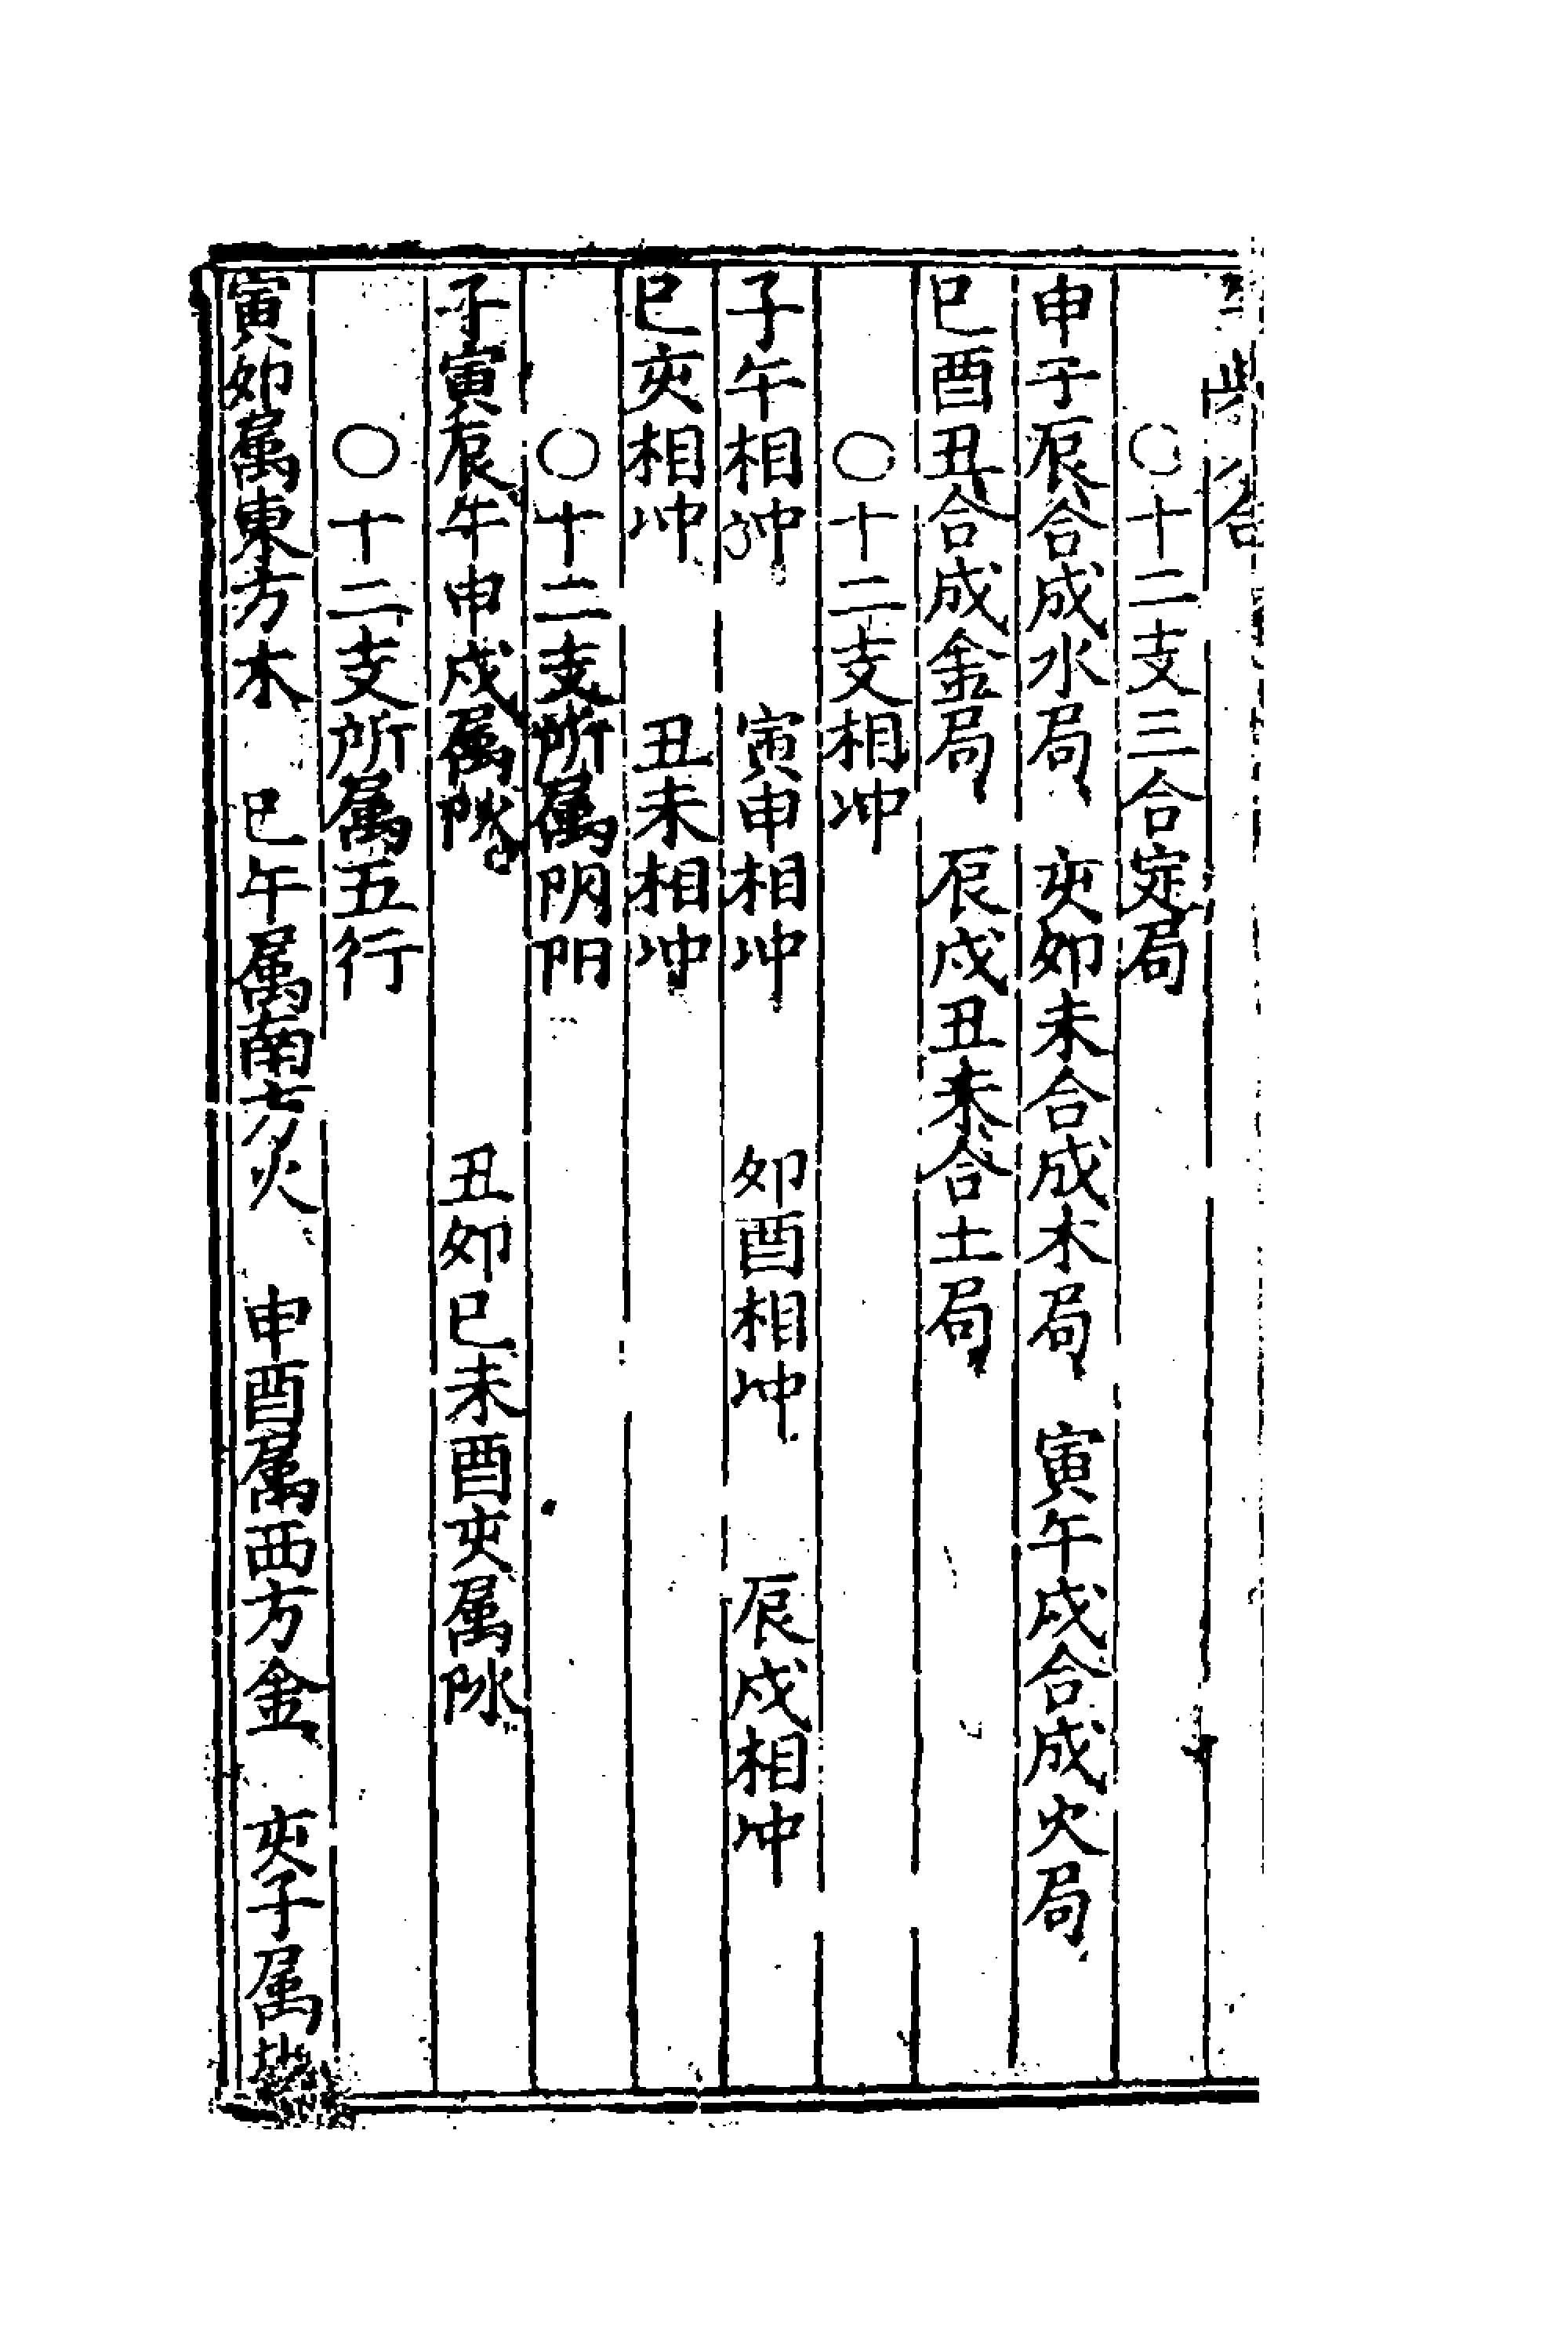 ○十二支三合定局
申子辰合成水局　亥卯未合成木局　寅午戌合成火局
巳酉丑合成金局　辰戌丑未合土局
○十二支相冲
子午相冲　寅申相冲　卯酉相冲　辰戌相冲
巳亥相冲　丑未相冲
○十二支所属阴阳
子寅辰午申戌属阦　丑卯巳未酉亥属阥
○十二支所属五行
寅卯属東方木　巳午属南方火　申酉属西方金　亥子属